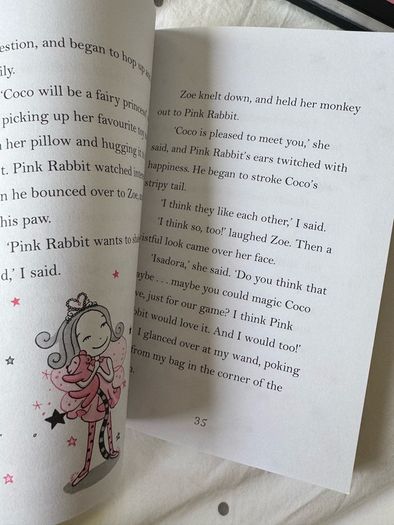 estion, and began to hop up
ily.
'Coco will be a fairy princess,
picking up her favourite toy
her pillow and hugging it
t. Pink Rabbit watched
n he bounced over to Zoe,
his paw.
'Pink Rabbit wants to
d,' I said.
Zoe knelt down, and held her monkey
out to Pink Rabbit.
'Coco is pleased to meet you,' she
said, and Pink Rabbit's ears twitched with
happiness. He began to stroke Coco's
stripy tail.
'I think they like each other,' I said.
'I think so, too!' laughed Zoe. Then a
istful look came over her face.
'Isadora,' she said. 'Do you think that
aybe . . . maybe you could magic Coco
ve, just for our game? I think Pink
bbit would love it. And I would too!'
I glanced over at my wand, poking
from my bag in the corner of the
35